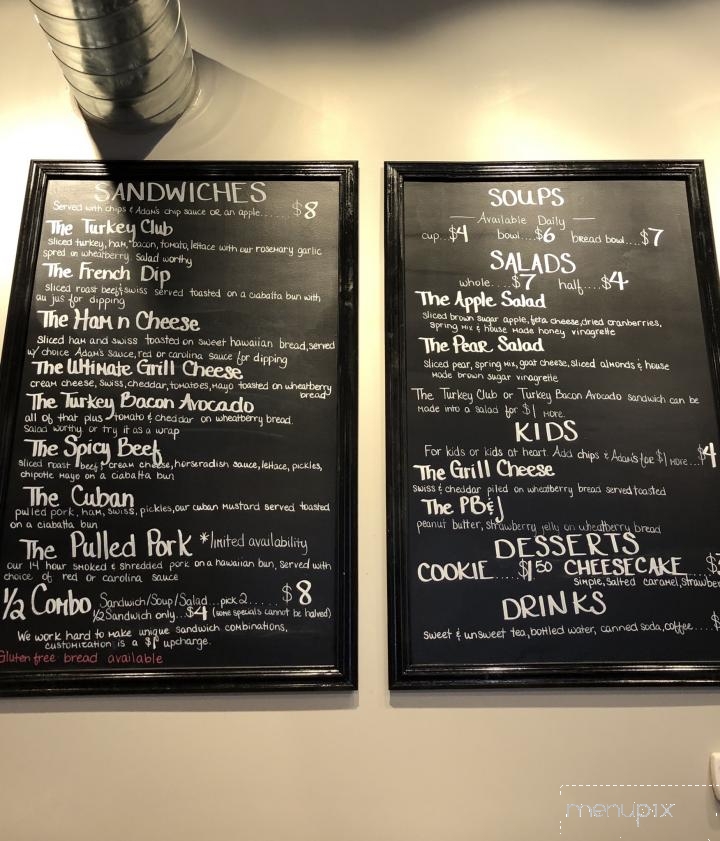 SANDWICHES
Served with chips & Adam's chip sauce OR an apple......$8
The Turkey Club
sliced turkey, ham, bacon, tomato, lettace with our rosemary garlic
spred on wheatberry. Salad worthy
The French Dip
sliced roast beef & swiss served toasted on a ciabatta bun with
au jus for dipping
The Ham n Cheese
sliced ham and swiss toasted on sweet hawaiian bread, served
w/ choice Adam's Sauce, red or carolina sauce for dipping
The Ultimate Grill Cheese
cream cheese, swiss, cheddar, tomatoes, mayo toasted on wheatberry
bread
The Turkey Bacon Avocado
all of that plus tomato & cheddar on wheatberry bread.
Salad worthy or try it as a wrap
The Spicy Beef
sliced roast beef, cream cheese, horseradish sauce, lettace, pickles,
chipotle mayo on a ciabatta bun
The Cuban
pulled pork, ham, swiss, pickles, our cuban mustard served toasted
on a ciabatta bun
The Pulled Pork *limited availability
our 14 hour smoked & shredded pork on a hawaiian bun, served with
choice of red or carolina sauce
1/2 Combo Sandwich/Soup/Salad...pick 2......$8
1/2 Sandwich only...$4 (some specials cannot be halved)
We work hard to make unique sandwich combinations,
customization is a $1 upcharge.
Gluten free bread available
SOUPS
Available Daily
cup...$4 bowl...$6 bread bowl...$7
SALADS
whole....$7 half....$4
The Apple Salad
sliced brown sugar apple, feta cheese, dried cranberries,
spring mix & house made honey vinagrette
The Pear Salad
sliced pear, spring mix, goat cheese, sliced almonds & house
made brown sugar vinagrette
The Turkey Club or Turkey Bacon Avocado sandwich can be
made into a salad for $1 more.
KIDS
For kids or kids at heart. Add chips & Adam's for $1 more...$4
The Grill Cheese
swiss & cheddar piled on wheatberry bread served toasted
The PB&J
peanut butter, strawberry jelly on wheatberry bread
DESSERTS
COOKIE.....$1.50 CHEESECAKE
simple, salted caramel,
DRINKS
sweet & unsweet tea, bottled water, canned soda, coffee....$
menupix